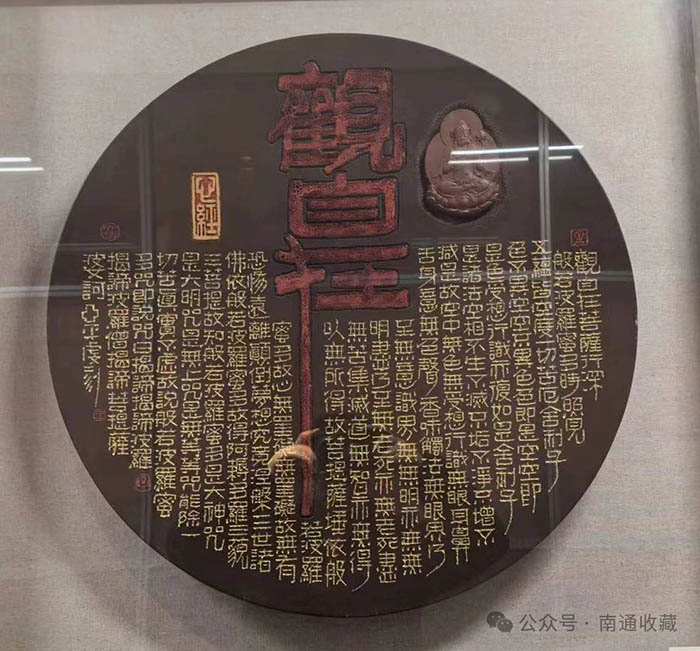 觀自在
心經
觀自在菩薩行深
般若波羅蜜多時照見
五蘊皆空度一切苦厄舍利子
色不異空空不異色色即是空空即
是色受想行識亦復如是舍利子
是諸法空相不生不滅不垢不淨不增不
減是故空中無色無受想行識無眼耳鼻
舌身意無色聲香味觸法無眼界乃
至無意識界無無明亦無無
明盡乃至無老死亦無老死盡
無苦集滅道無智亦無得
以無所得故菩提薩埵依般
若波羅
蜜多故心無罣礙無罣礙故無有
恐怖遠離顛倒夢想究竟涅槃三世諸
佛依般若波羅蜜多故得阿耨多羅三藐
三菩提故知般若波羅蜜多是大神咒
是大明咒是無上咒是無等等咒能除一
切苦真實不虛故說般若波羅蜜
多咒即說咒曰揭諦揭諦波羅
揭諦波羅僧揭諦菩提薩
婆訶
公众号·南通收藏